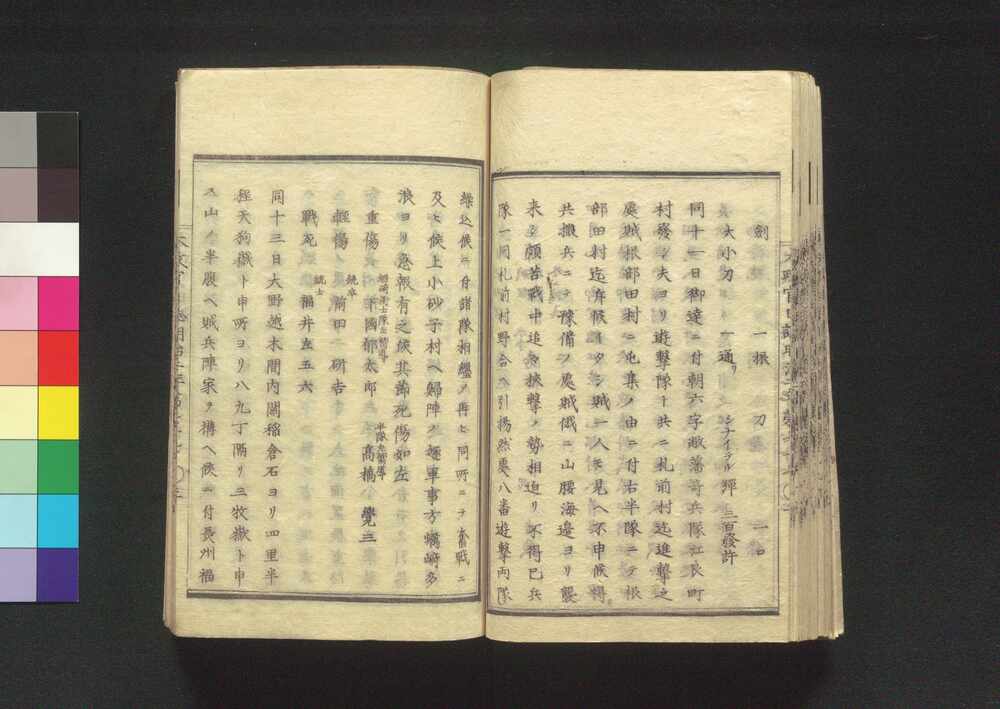 一劍 一振 一刀 一
一大小刀 一通リ 一シナイトル彈 三百發許
同十一日御達ニ付朝六字敝藩奇兵隊江良町
村發シ夫ヨリ遊擊隊ト共ニ札前村迄進擊之
處賊根部田村ニ屯集ノ由ニ付右半隊ニテ根
部田村迄奔候イタシ賊一人モ見ヘ不申候得
共撒兵ニテ豫備ノ處賊俄ニ山腰海邊ヨリ襲
来シ頗苦戰中追々挾擊ノ勢相迫リ不得已兵
隊一同札前村野合ヘ引揚然處八番遊擊兩隊
繰込候ニ付諸隊相纒メ再ヒ同所ニテ奮戰ニ
及ヒ候上小砂子村ヘ歸陣ノ趣軍事方蠣崎多
浪ヨリ急報有之候其節死傷如左
重傷 糾武隊士嚮導 半國郁太郎 半隊右嚮導 高橋 覺三
輕傷 銃卒 前田 研吉
戰死 銃士 福井左五六
同十三日大野越木間内閣稻倉石ヨリ四里半
程天狗嶽ト申所ヨリ八九丁隔リ三牧嶽ト申
ス山ノ半腹ヘ賊兵陣家ヲ構ヘ候ニ付長州福